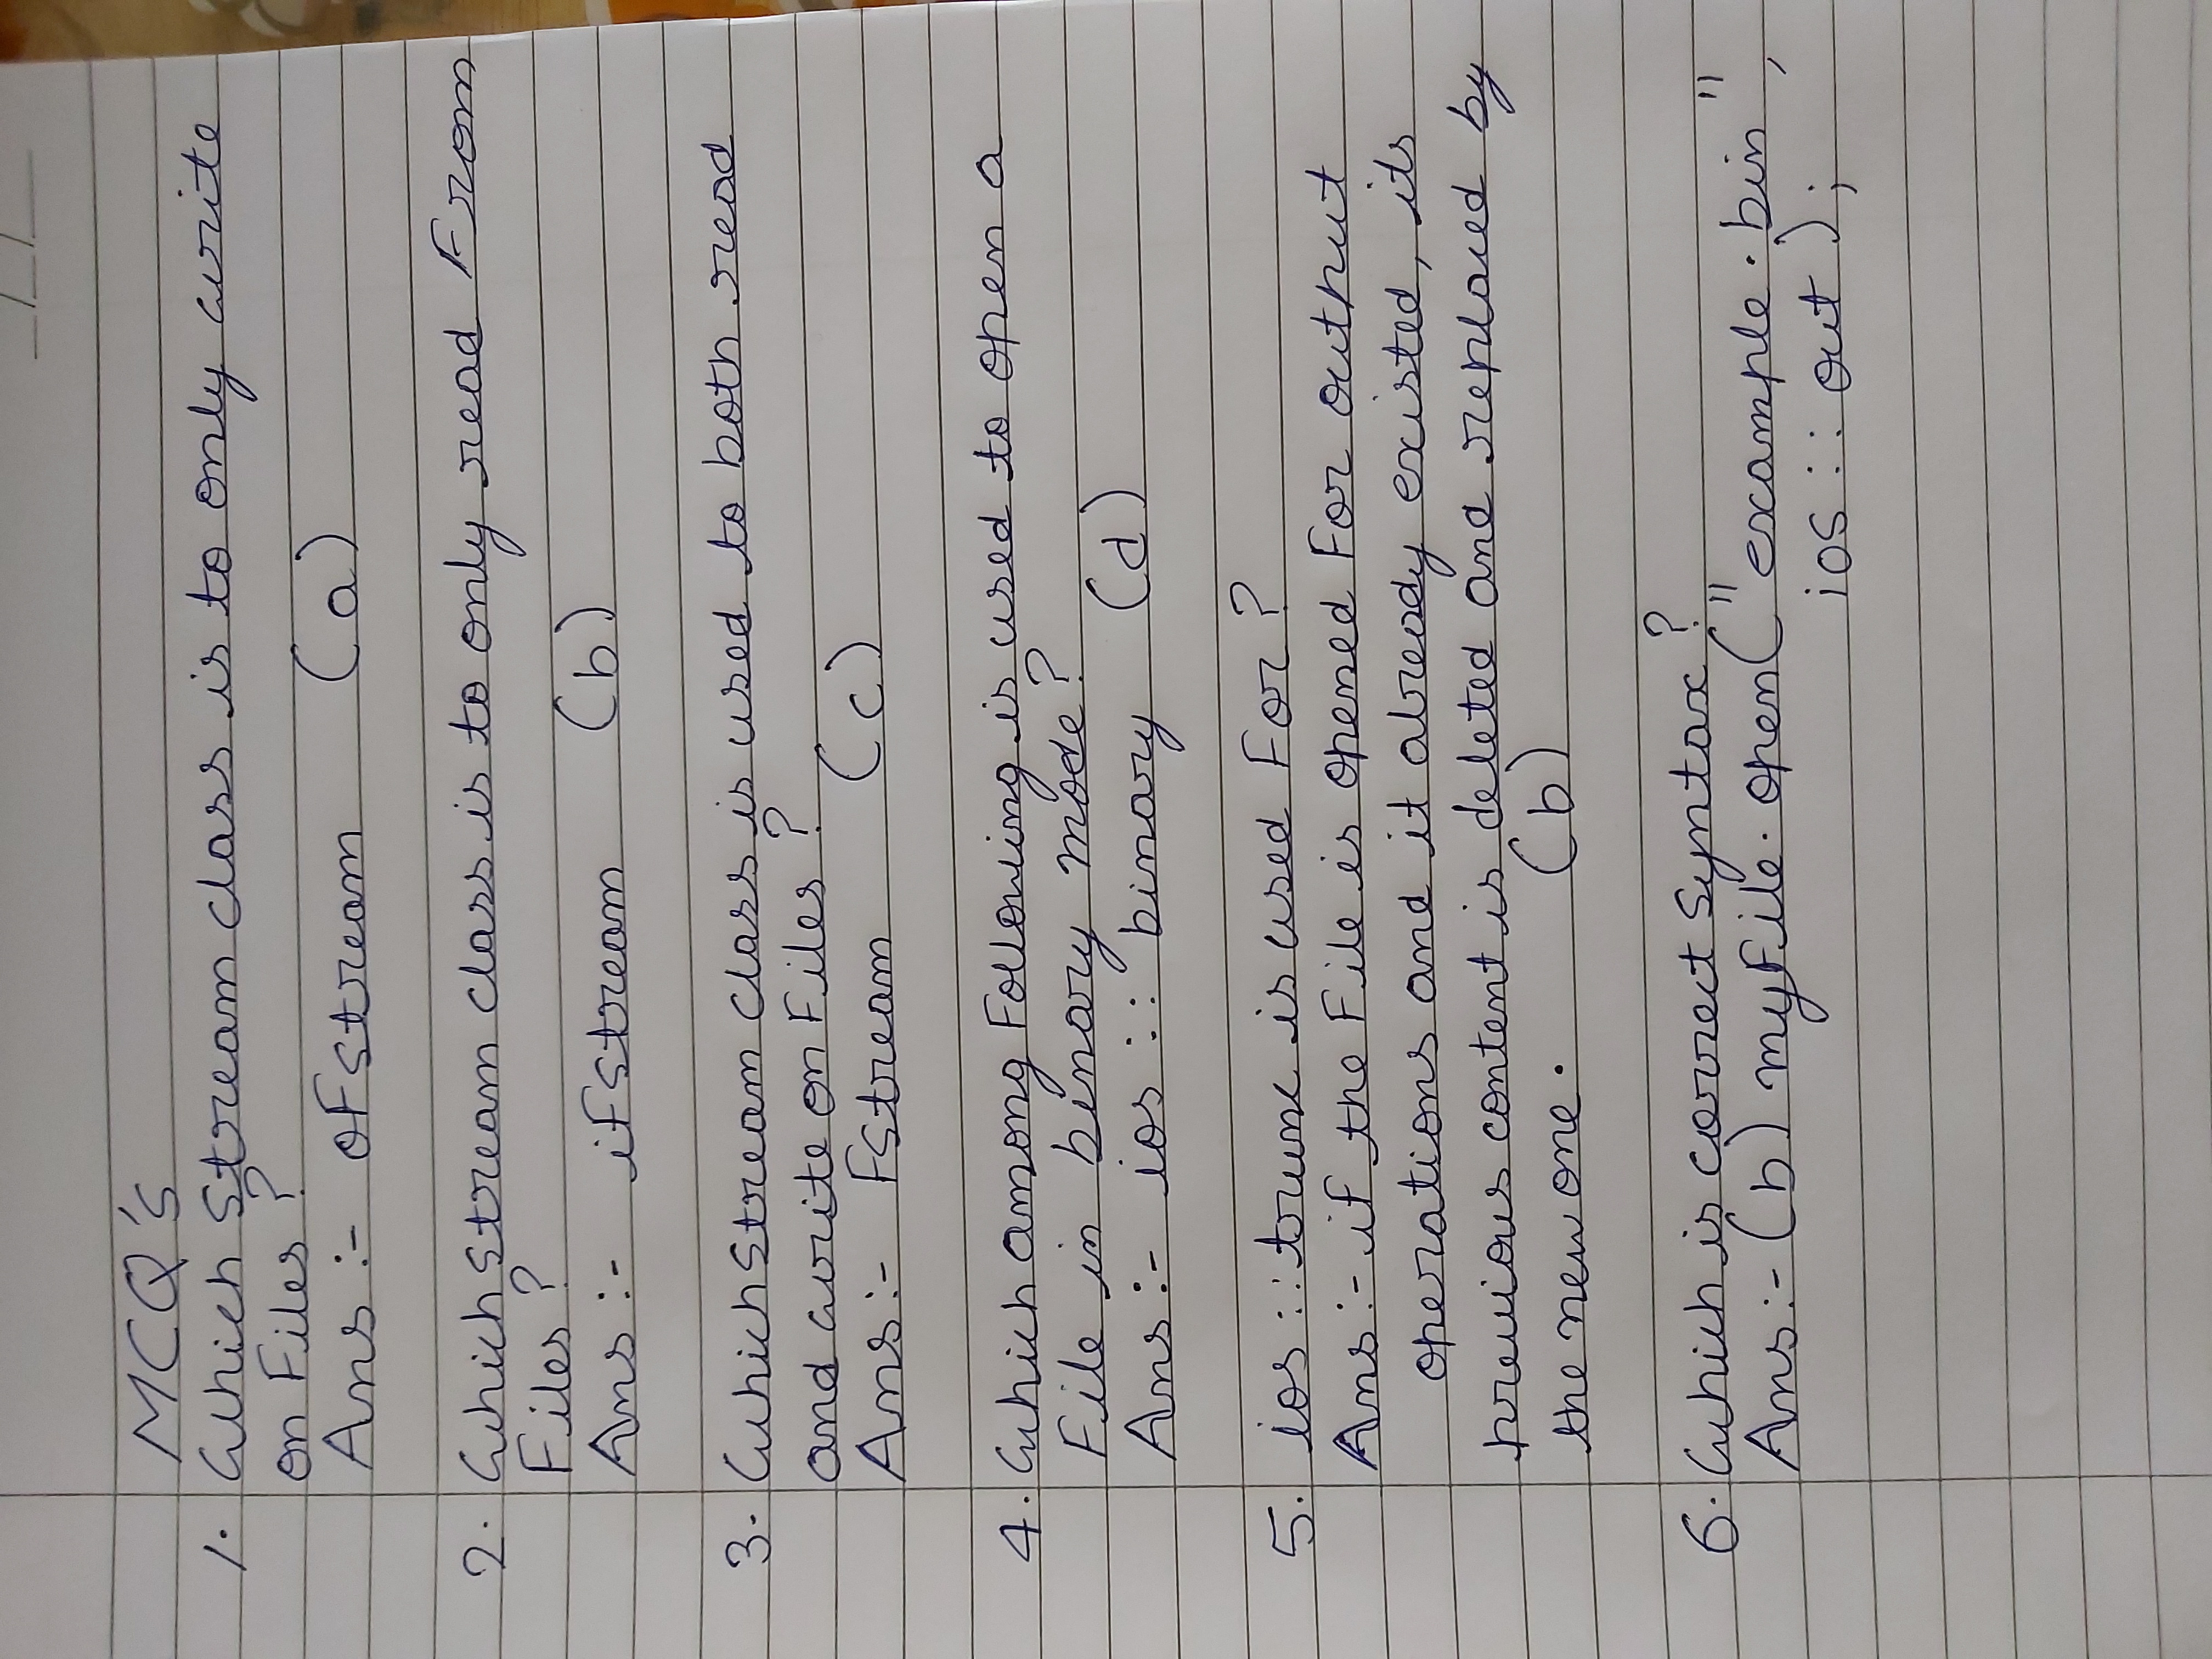 MCQ's
1. Which Stream class is to only write
on Files ?
Ans :- oFstream (a)
2. Which stream class is to only read From
Files ?
Ans :- iFstream (b)
3. Which stream class is used to both read
and write on Files ?
Ans :- Fstream (c)
4. Which among Following is used to open a
File in binary mode ?
Ans :- ios :: binary (d)
5. ios :: trunc is used For ?
Ans :- if the File is opened For output
operations and it already existed, its
previous content is deleted and replaced by
the new one. (b)
6. Which is correct Syntax ?
Ans :- (b) myFile.open("example.bin",
ios :: out);